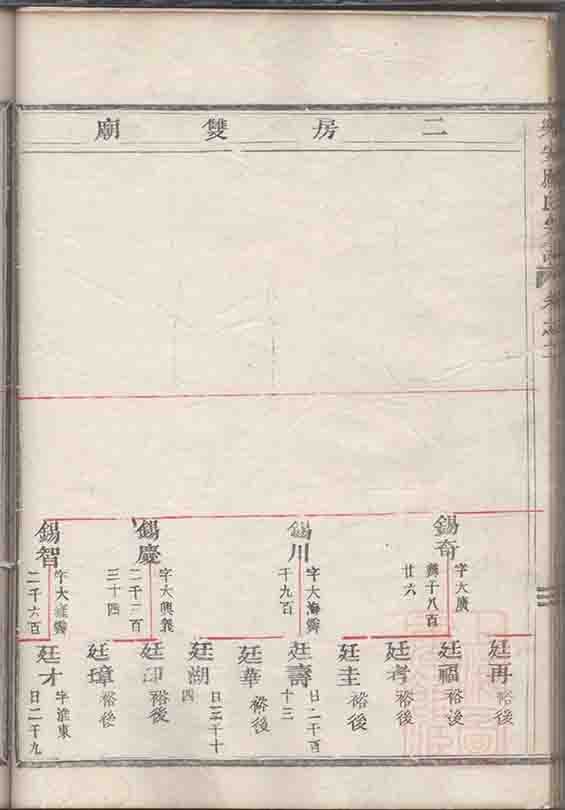 二房雙廟
錫奇
字大廣
興千八百
廿六
錫川
字大海
千九百
錫慶
字大興義
二千二百
三十四
錫智
二千六百
廷再
裕後
廷福
裕後
廷考
裕後
廷圭
裕後
廷壽
日二千百
十三
廷華
裕後
廷湖
日三千十
四
廷印
裕後
廷璋
裕後
廷才
字淮東
日二千九